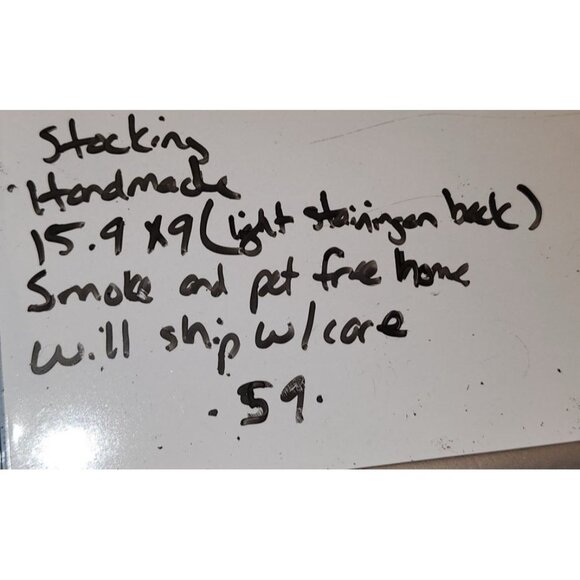 Stocking
Handmade
15.9 x 9 (light staining on back)
Smoke and pet free home
Will ship w/care
.59.